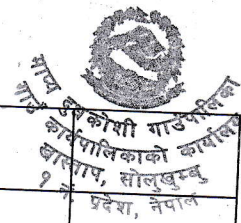 माप्य दुधकोशी गाउँपालिका
गाउँ कार्यपालिकाको कार्यालय
सोलुखुम्बु
१ नं. प्रदेश, नेपाल